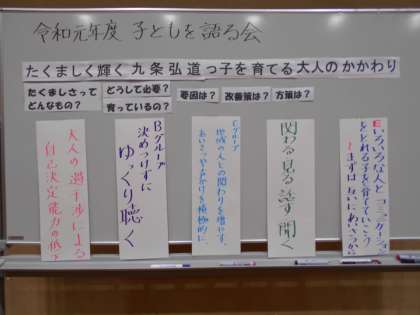 令和元年度 子どもを語る会
たくましく輝く九条弘道っ子を育てる大人のかかわり
たくましさって
どんなもの?
どうして必要?
育っているの?
要因は?
改善策は?
方策は?
大人の過干渉による
自己決定能力の低下
Bグループ
決めつけずに
ゆっくり聴く
Cグループ
地域の人との関わりを増やす。
あいさつや声かけを積極的に。
関わる 見る 話す 聞く
E いろいろな人とコミュニケーション
をとれる子を育てていこう
まずは互いにあいさつから